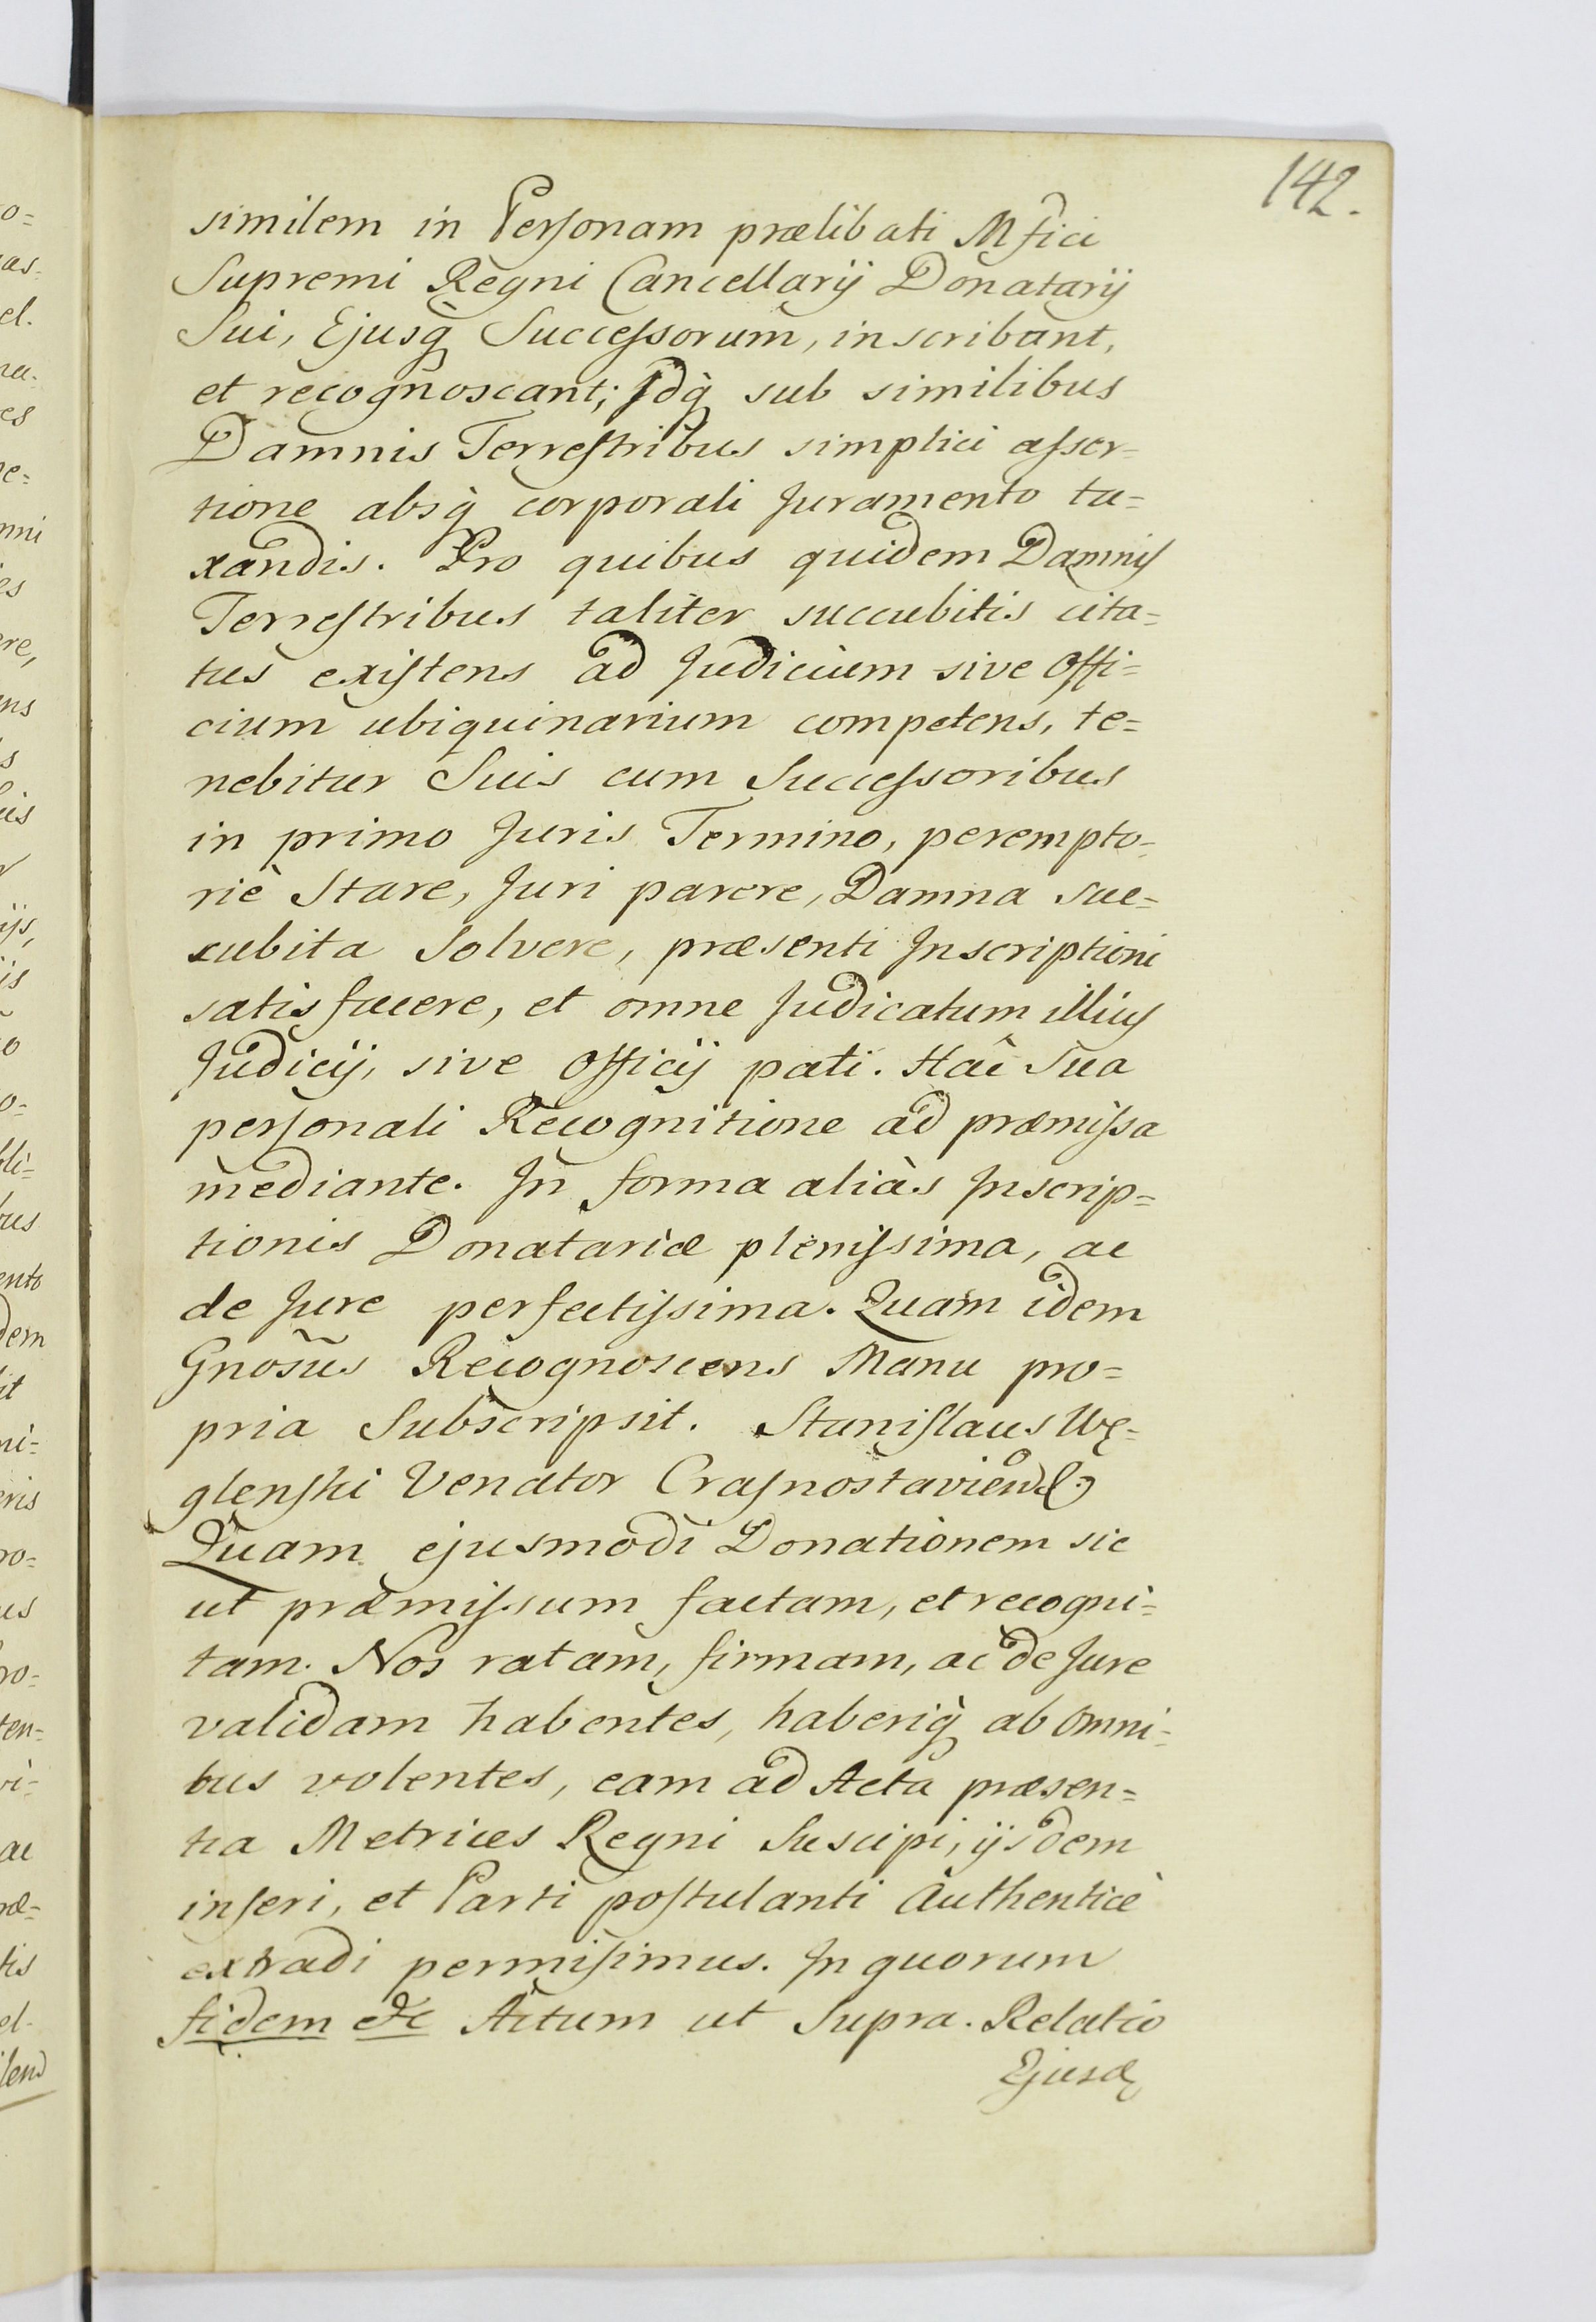 142.
similem in Personam prælibati Mfici
Supremi Regni Cancellarij Donatarij
Sui, Ejusq̀ Successorum, inscribant,
et recognoscant; Jdq̀ sub similibus
Damnis Terrestribus simplici asser=
tione absq̀ corporali Juramento ta=
xandis. Pro quibus quidem Damnis
Terrestribus taliter succubitis cita=
tus existens ad Judicium sive Offi=
cium ubiquinarium competens, te=
nebitur Suis cum Successoribus
in primo Juris Termino, perempto=
riè Stare, Juri parere, Damna suc=
cubita Solvere, præsenti Jnscriptioni
satisfacere, et omne Judicatum illius
Judicij, sive Officij pati. Hac Sua
personali Recognitione ad præmissa
mediante. Jn forma aliàs Jnscrip=
tionis Donatariæ plenissima, ac
de Jure perfectissima. Quam idem
Gnosus Recognoscens Manu pro=
pria Subscripsit. Stanislaus Wę=
glenski Venator Crasnostavien
Quam ejusmodi Donationem sic
ut præmissum factam, et recogni=
tam. Nos ratam, firmam, ac de Jure
validam habentes, haberiq̀ ab omni=
bus volentes, eam ad Acta præsen=
tia Metrices Regni Suscipi, ijsdem
inseri, et Parti postulanti Authenticè
extradi permisimus. Jn quorum
fidem etc Actum ut Supra. Relatio
Ejusd
o=
as=
el.
es
mni
ere,
ens
ijs,
bli=
bus
ento
dem
it
ni=
eris
ro=
us
ro=
ten=
vi=
ac
ræ=
tis
el.